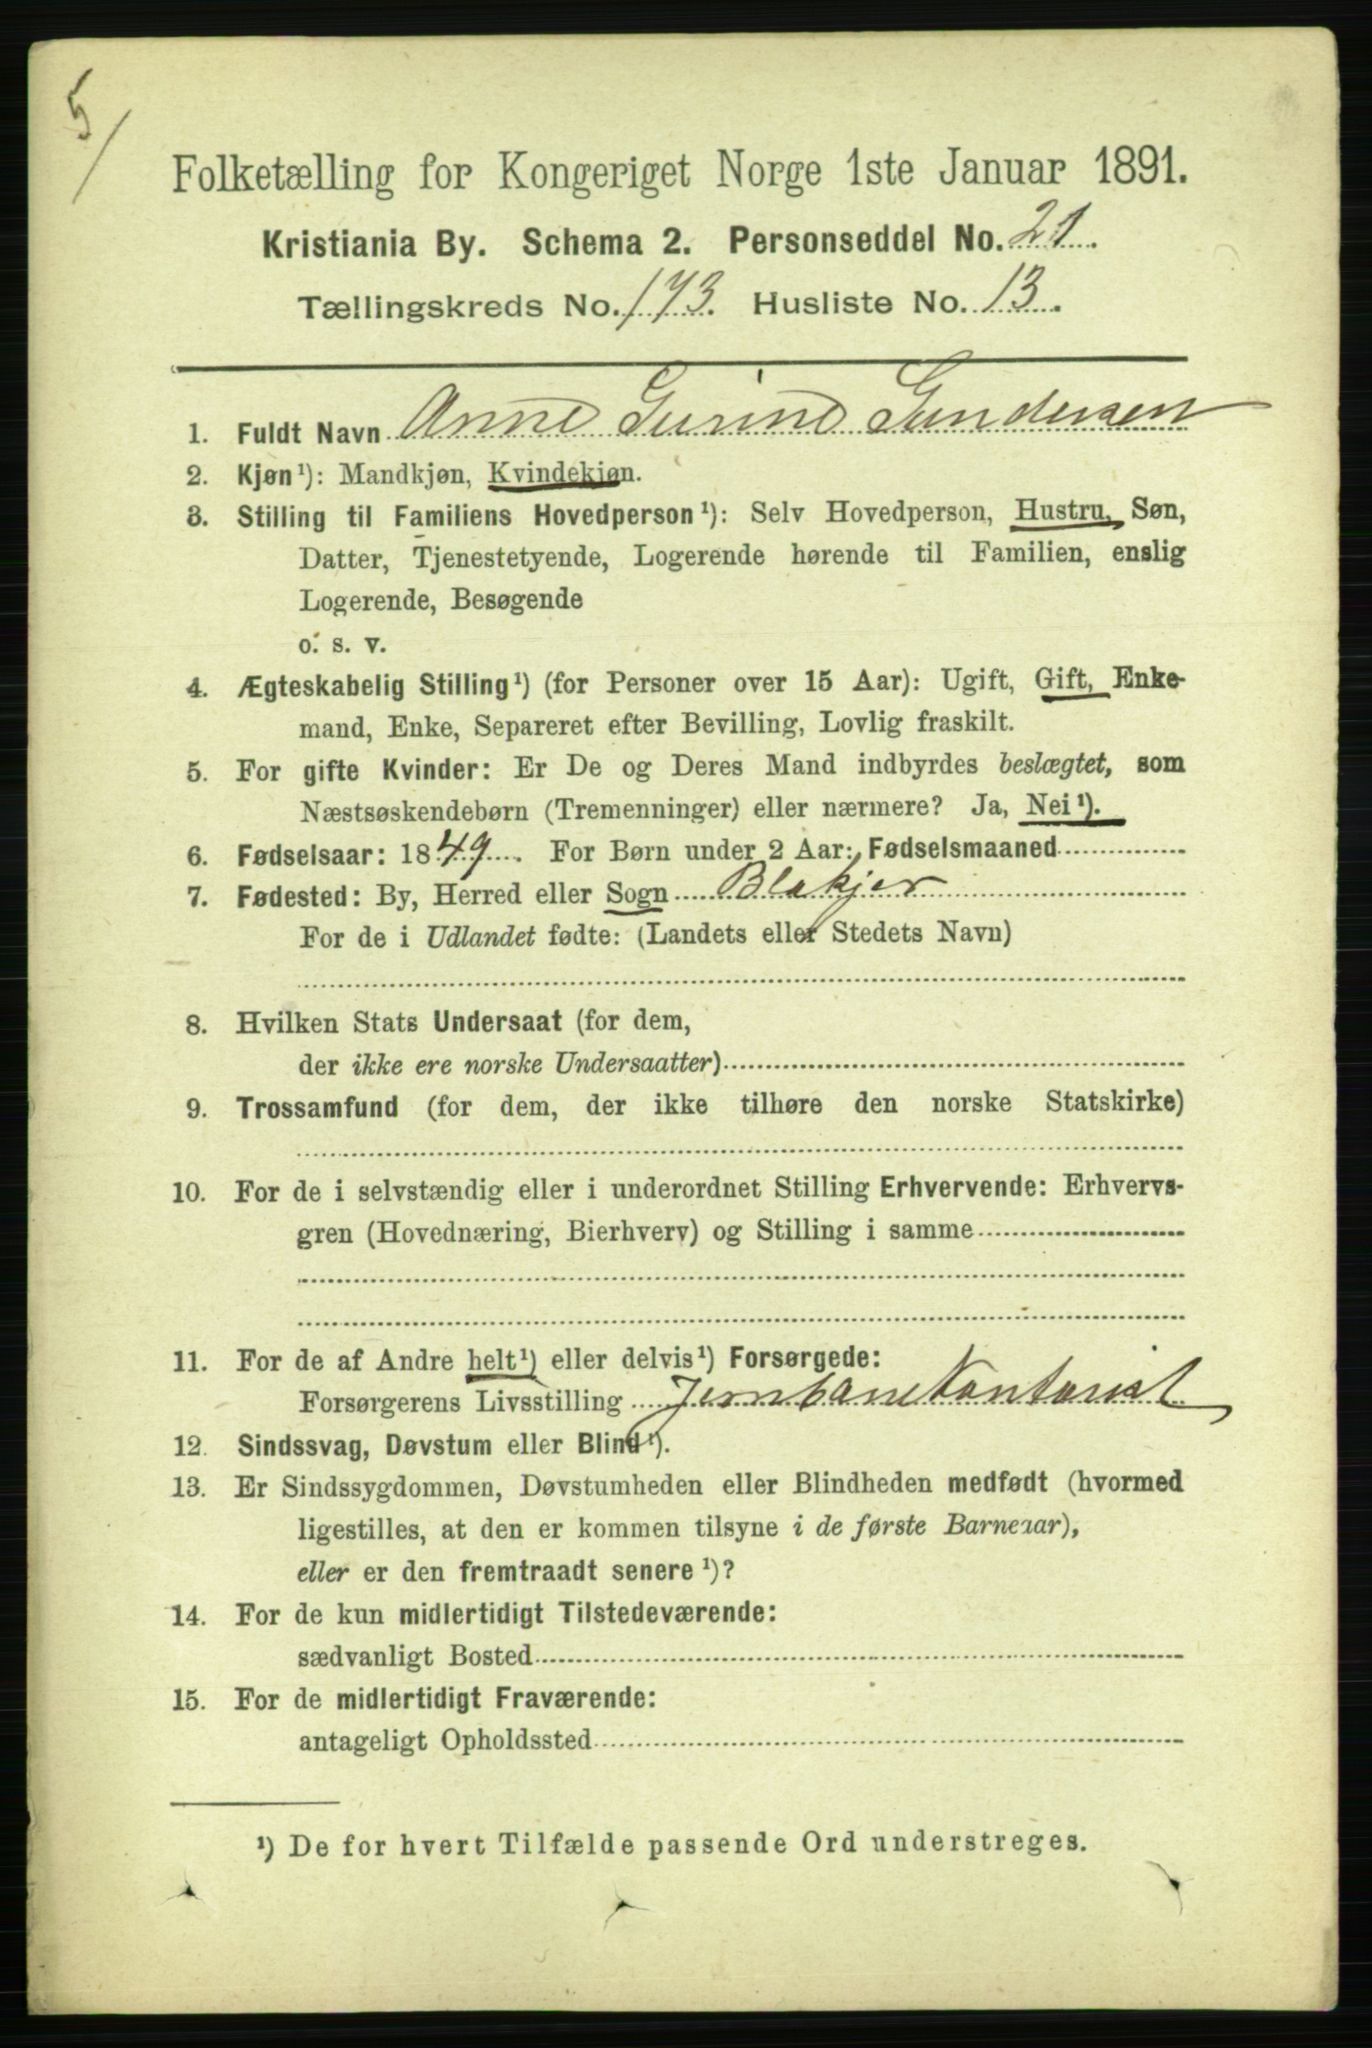 5/
Folketælling for Kongeriget Norge 1ste Januar 1891.
Kristiania By. Schema 2. Personseddel No. 21.
Tællingskreds No. 173. Husliste No. 13.
1. Fuldt Navn Anne Gurine Gundersen
2. Kjøn¹): Mandkjøn, Kvindekjøn.
3. Stilling til Familiens Hovedperson¹): Selv Hovedperson, Hustru, Søn,
Datter, Tjenestetyende, Logerende hørende til Familien, enslig
Logerende, Besøgende
o. s. v.
4. Ægteskabelig Stilling¹) (for Personer over 15 Aar): Ugift, Gift, Enke-
mand, Enke, Separeret efter Bevilling, Lovlig fraskilt.
5. For gifte Kvinder: Er De og Deres Mand indbyrdes beslægtet, som
Næstsøskendebørn (Tremenninger) eller nærmere? Ja, Nei¹).
6. Fødselsaar: 1849. For Børn under 2 Aar: Fødselsmaaned
7. Fødested: By, Herred eller Sogn Blakjer
For de i Udlandet fødte: (Landets eller Stedets Navn)
8. Hvilken Stats Undersaat (for dem,
der ikke ere norske Undersaatter)
9. Trossamfund (for dem, der ikke tilhøre den norske Statskirke)
10. For de i selvstændig eller i underordnet Stilling Erhvervende: Erhvervs-
gren (Hovednæring, Bierhverv) og Stilling i samme
11. For de af Andre helt¹) eller delvis¹) Forsørgede:
Forsørgerens Livsstilling Jernbanekontorist
12. Sindssvag, Døvstum eller Blind¹).
13. Er Sindssygdommen, Døvstumheden eller Blindheden medfødt (hvormed
ligestilles, at den er kommen tilsyne i de første Barneaar),
eller er den fremtraadt senere¹)?
14. For de kun midlertidigt Tilstedeværende:
sædvanligt Bosted
15. For de midlertidigt Fraværende:
antageligt Opholdssted
¹) De for hvert Tilfælde passende Ord understreges.